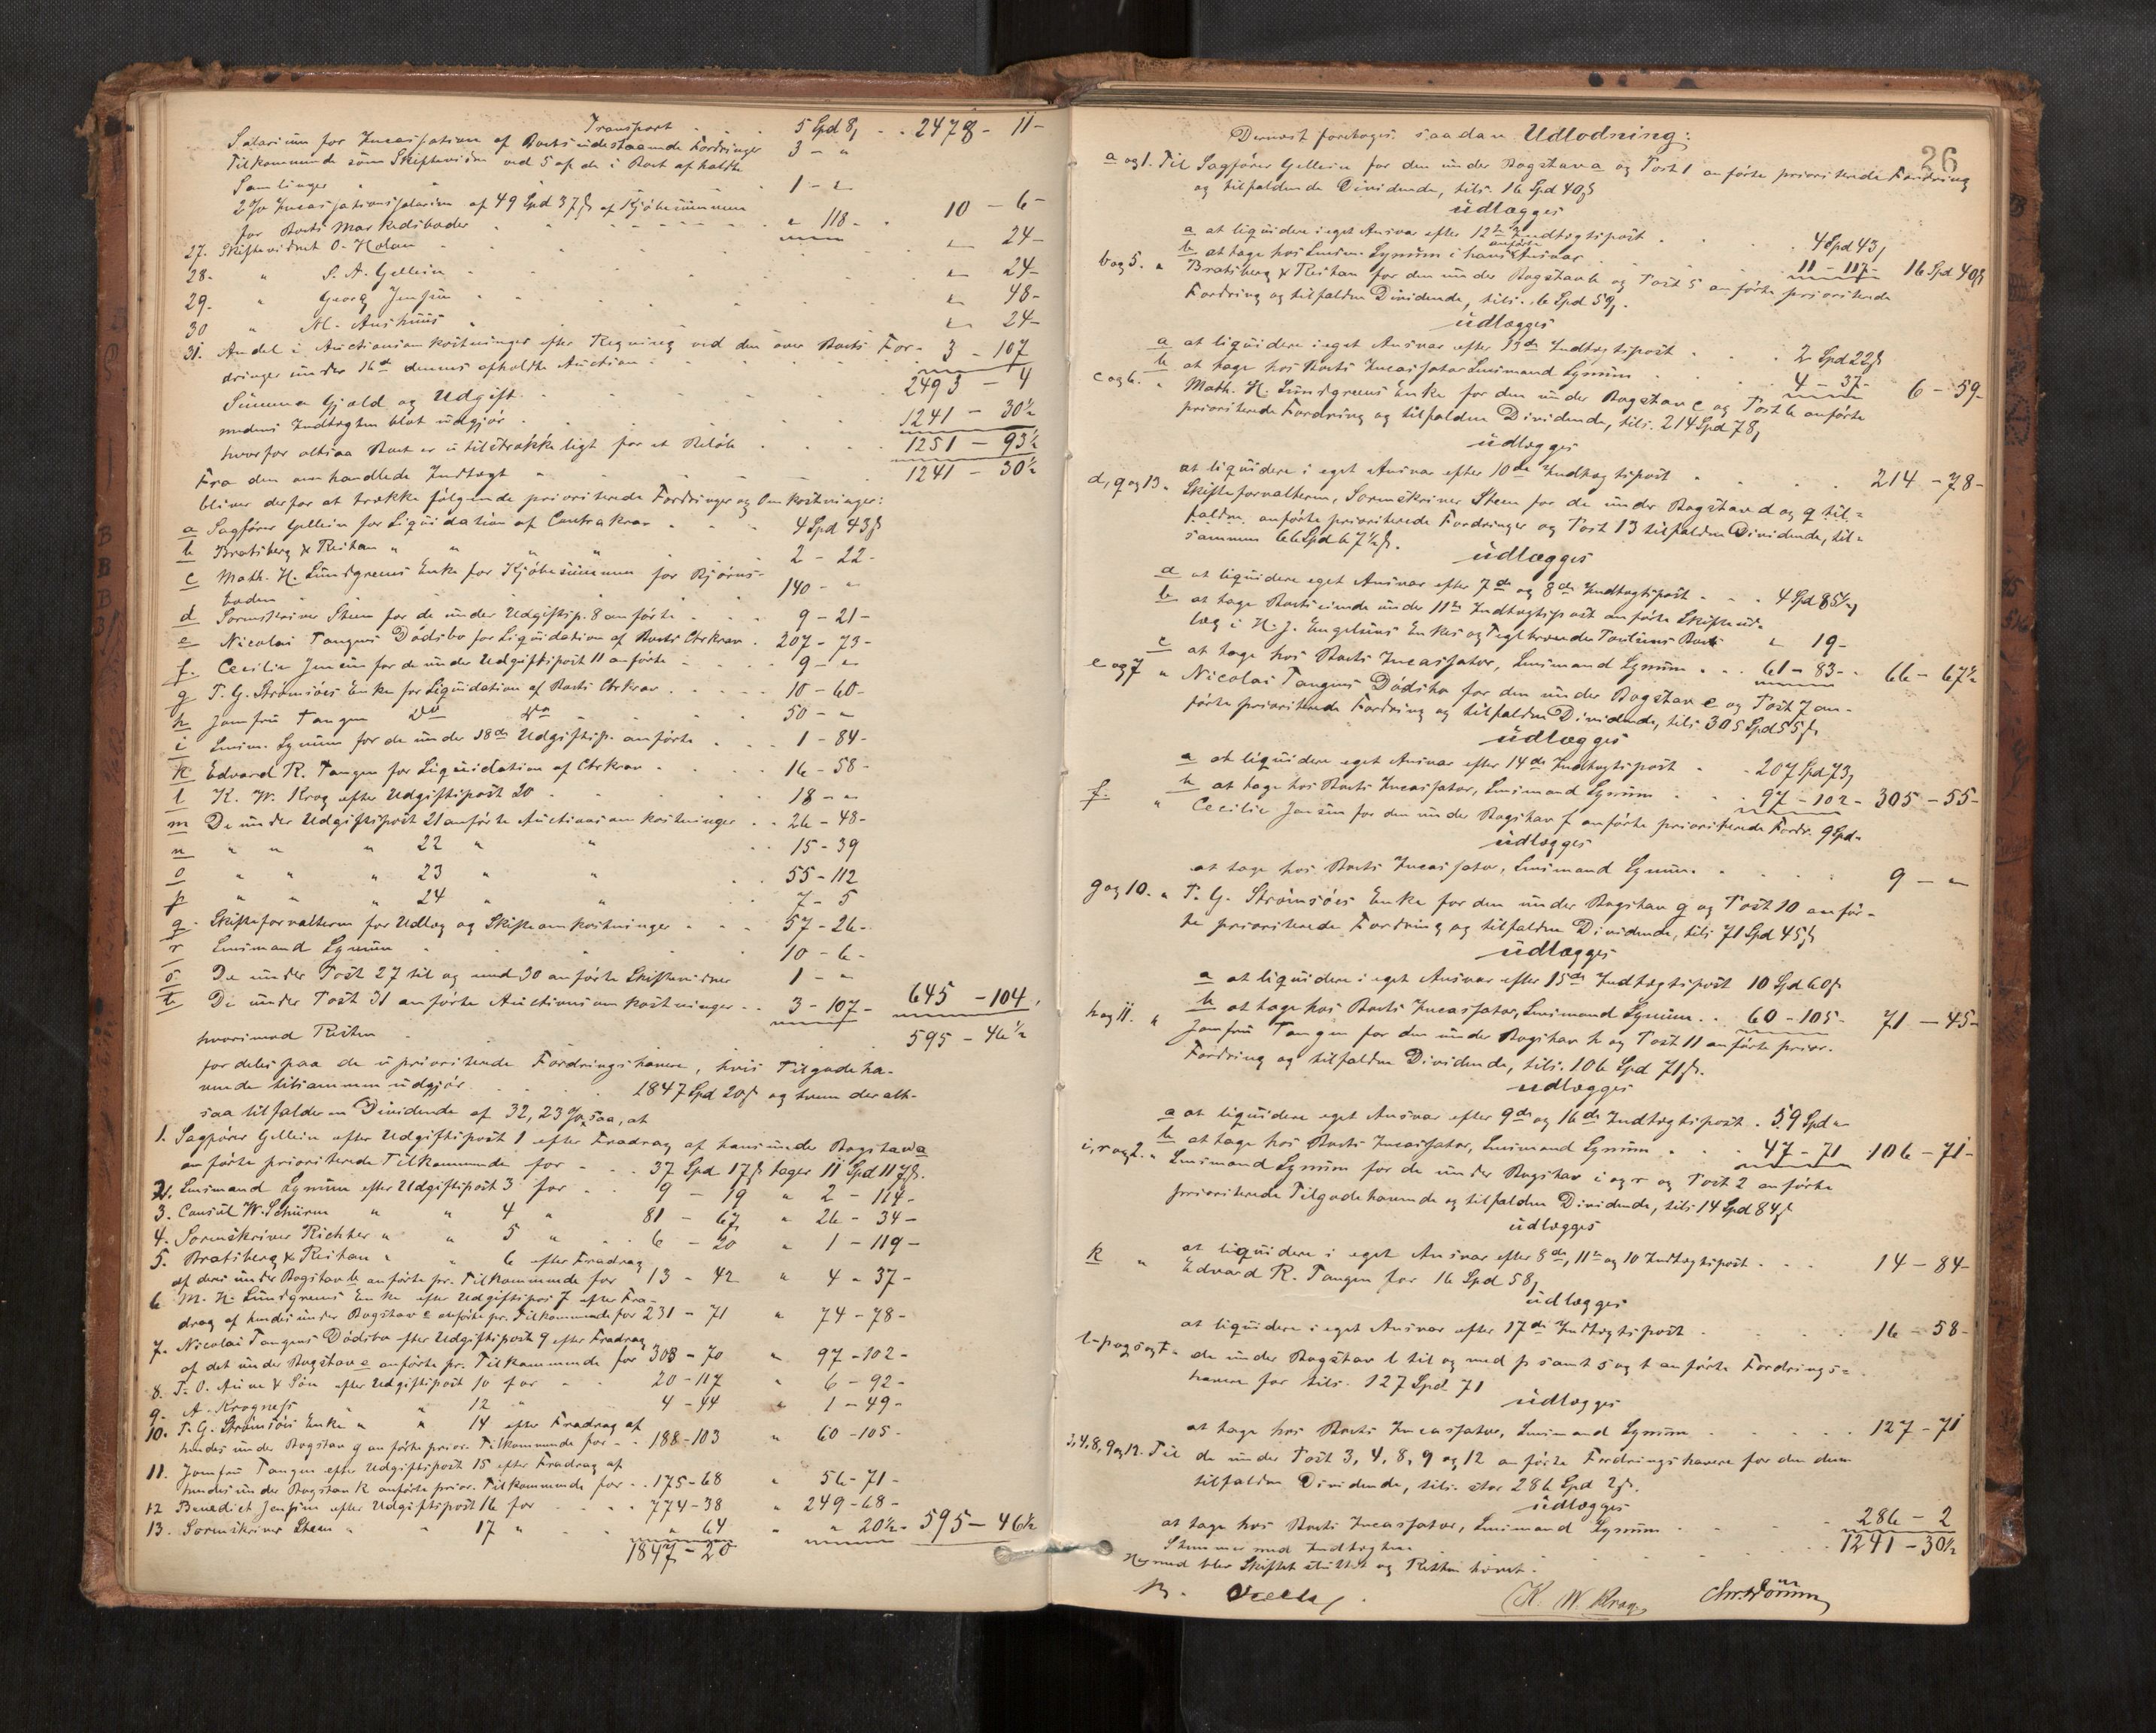 Transport . . . 5 Spd 8, . . 2478 - 11 -
Salarium for Incassation af Boets udestaaende Fordringer 3 - "
Tilkommende som Skiftevidne ved 5 af de i Boet afholdte
Samlinger " . . . 1 - "
2 % Incassationssalarium af 49 Spd 37 ß af Kjøbesummen
for Boets Markedsboder . . . " 118 - . 10 - 6 -
27. Skiftevidnet O. Holan . . . " 24 -
28. " S. A. Gellein . . . " 24 -
29. " Georg Jensen . . . " 48 -
30 " M. Aushuus . . . " 24 -
31. Andel i Auctionsomkostninger efter Regning ved den over Boets For- 3 - 107
dringer under 16de dennes afholdte Auction
Summa Gjæld og Udgift . . . 2493 - 4
medens Indtægten blot udgjør . . . 1241 - 30½
hvorfor altsaa Boet er utilstrækkeligt for et Beløb . . . 1251 - 93½
Fra den omhandlede Indtægt " . . . 1241 - 30½
bliver derfor at trække følgende prioriterede Fordringer og Omkostninger:
a Sagfører Gellein for Liquidation af Contrakrav . . . 4 Spd 43 ß
b Bratsberg & Reitan " " " " 2 - 22 -
c Math. H. Lundgreens Enke for Kjøbesummen for Bjørns-
boden " . . . 140 - "
d Sorenskriver Steen for de under Udgiftsp. 8 anførte . . . 9 - 21 -
e Nicolai Tangens Dødsbo for Liquidation af Boets Ctrkrav . 207 - 73 -
f. Cecilie Jensen for de under Udgiftspost 11 anførte . . . 9 - "
g T. G. Strømsøes Enke for Liquidation af Boets Ctrkrav . . . 10 - 60 -
h Jomfru Tangen do do . . . 50 - "
i Lensm. Lynum for de under 18de Udgiftsp. anførte . . . 1 - 84 -
k Edvard R. Tangen for Liquidation af Ctrkrav . . . 16 - 58 -
l K. W. Krog efter Udgiftspost 20 . . . 18 - "
m De under Udgiftspost 21 anførte Auctionsomkostninger . . 26 - 48 -
n " " " 22 " " . . 15 - 39
o " " " 23 " " . . 55 - 112
p " " " 24 " " 7 - 5
q. Skifteforvalteren for Udlæg og Skifteomkostninger . . . 57 - 26 -
r Lensmand Lynum . . . 10 - 6 -
s De under Post 27 til og med 30 anførte Skiftevidner 1 - "
t De under Post 31 anførte Auctionsomkostninger . . 3 - 107 - 645 - 104,
hvorimod Resten . . . 595 - 46½
fordeles paa de uprioriterede Fordringshavere, hvis Tilgodeha-
vende tilsammen udgjør . . . 1847 Spd 20 ß og hvem der alt-
saa tilfalder en Dividende af 32,23 %, saa, at
1. Sagfører Gellein efter Udgiftspost 1 efter Fradrag af hans under Bogstav a
anførte prioriterede Tilkommende for . . . 37 Spd 17 ß tager 11 Spd 117 ß.
2. Lensmand Lynum efter Udgiftspost 3 for . . 9 - 19 " 2 - 114 -
3. Consul W. Schürm " " 4 " 81 - 67 " 26 - 34 -
4. Sorenskriver Richter " " 5 " . . 6 - 20 " 1 - 119 -
5. Bratsberg & Reitan " " 6 efter Fradrag
af deres under Bogstav b anførte pr. Tilkommende for 13 - 42 " 4 - 37 -
6 M. H. Lundgreens Enke efter Udgiftspost 7 efter Fra-
drag af hendes under Bogstav c anførte pr. Tilkommende for 231 - 71 " 74 - 78 -
7. Nicolai Tangens Dødsbo efter Udgiftspost 9 efter Fradrag
af det under Bogstav e anførte pr. Tilkommende for 303 - 70 " 97 - 102 -
8. T. O. Aune & Søn efter Udgiftspost 10 for . . 20 - 117 " 6 - 92 -
9. A. Krogness " " 12 " 4 - 44 " 1 - 49 -
10. T. G. Strømsøes Enke " " 14 efter Fradrag af
hendes under Bogstav g anførte prior. Tilkommende for . . 188 - 103 " 60 - 105 -
11. Jomfru Tangen efter Udgiftspost 15 efter Fradrag af
hendes under Bogstav h anførte prior. Tilkommende for . . 175 - 68 " 56 - 71 -
12 Benedict Jenssen efter Udgiftspost 16 for . . . 774 - 38 " 249 - 68 -
13. Sorenskriver Steen " " 17 " . . . " 64 " " 20½ - 595 - 46½
1847 - 20
26
Dernæst foretoges saadan Udlodning:
a og 1. Til Sagfører Gellein for den under Bogstav a og Post 1 anførte prioriterede Fordring
og tilfaldende Dividende, tils. 16 Spd 40 ß
udlægges
a at liquidere i eget Ansvar efter 12te Indtægtspost . . . 4 Spd 43,
b at tage hos Lensm. Lynum i hans anførte Ansvar . . . 11 - 117 - 16 Spd 40 ß
b og 5. " Bratsberg & Reitan for den under Bogstav b og Post 5 anførte prioriterede
Fordring og tilfaldne Dividende, tils. 6 Spd 59,.
udlægges
a at liquidere i eget Ansvar efter 13de Indtægtspost . . . 2 Spd 22 ß
b at tage hos Boets Incassator Lensmand Lynum . . . 4 - 37 - 6 - 59 -
c og 6. " Math. H. Lundgreens Enke for den under Bogstav c og Post 6 anførte
prioriterede Fordring og tilfaldne Dividende, tils. 214 Spd 78,
udlægges
at liquidere i eget Ansvar efter 10de Indtægtspost . . . 214 - 78 -
d, q og 13. " Skifteforvalteren, Sorenskriver Steen for de under Bogstav d og q til-
faldne anførte prioriterede Fordringer og Post 13 tilfaldne Dividende, til-
sammen 66 Spd 67½ ß.
udlægges
a at liquidere eget Ansvar efter 7de og 8de Indtægtspost . . . 4 Spd 85½,
b at tage Boets iende under 11te Indtægtspost anførte Skifteud-
læg i H. J. Engelsens Enkes og Teglbrænder Poulsens Boer " 19 -
c at tage hos Boets Incassator, Lensmand Lynum . . . 61 - 83 - . 66 - 67½
e og 7 " Nicolai Tangens Dødsbo for den under Bogstav e og Post 7 an-
førte prioriterede Fordring og tilfaldne Dividende, tils. 305 Spd 55 ß,
udlægges
a at liquidere eget Ansvar efter 14de Indtægtspost . . 207 Spd 73,
b at tage hos Boets Incassator, Lensmand Lynum . . . 97 - 102 - 305 - 55 -
f. " Cecilie Jensen for den under Bogstav f anførte prioriterede Fordr. 9 Spd "
udlægges
at tage hos Boets Incassator, Lensmand Lynum . . . 9 - "
g og 10. " T. G. Strømsøes Enke for den under Bogstav g og Post 10 anfør-
te prioriterede Fordring og tilfaldne Dividende, tils 71 Spd 45 ß
udlægges
a at liquidere i eget Ansvar efter 15de Indtægtspost 10 Spd 60 ß
b at tage hos Boets Incassator, Lensmand Lynum . . 60 - 105 - 71 - 45 -
h og 11. " Jomfru Tangen for den under Bogstav h og Post 11 anførte prior.
Fordring og tilfaldne Dividende, tils. 106 Spd 71 ß.
udlægges
a at liquidere eget Ansvar efter 9de og 16de Indtægtspost . 59 Spd "
b at tage hos Boets Incassator, Lensmand Lynum . . . 47 - 71 106 - 71 -
i, r og 2. " Lensmand Lynum for de under Bogstav i og r og Post 2 anførte
prioriterede Tilgodehavende og tilfaldne Dividende, tils 14 Spd 84 ß
udlægges
at liquidere i eget Ansvar efter 8de, 11te og 10 Indtægtspost . . . 14 - 84 -
k " Edvard R. Tangen for 16 Spd 58,
udlægges
at liquidere i eget Ansvar efter 17de Indtægtspost . . . 16 - 58 -
l-p og s og t. " de under Bogstav l til og med p samt s og t anførte Fordrings-
havere for tils. 127 Spd 71
udlægges
at tage hos Boets Incassator, Lensmand Lynum . . . 127 - 71
3, 4, 8, 9 og 12. Til de under Post 3, 4, 8, 9 og 12 anførte Fordringshavere for den dem
tilfaldne Dividende, tils. stor 286 Spd 2 ß.
udlægges
at tage hos Boets Incassator, Lensmand Lynum . . . 286 - 2
Stemmer med Indtægten . . . 1241 - 30½
Hermed blev Skiftet sluttet og Retten hævet.
K. W. Krog